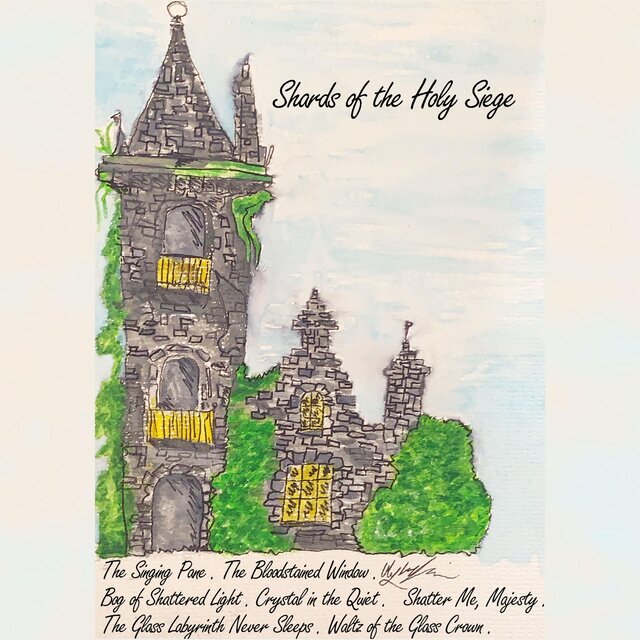 Shards of the Holy Siege
The Singing Pane . The Bloodstained Window .
Bog of Shattered Light . Crystal in the Quiet . Shatter Me, Majesty .
The Glass Labyrinth Never Sleeps . Waltz of the Glass Crown .